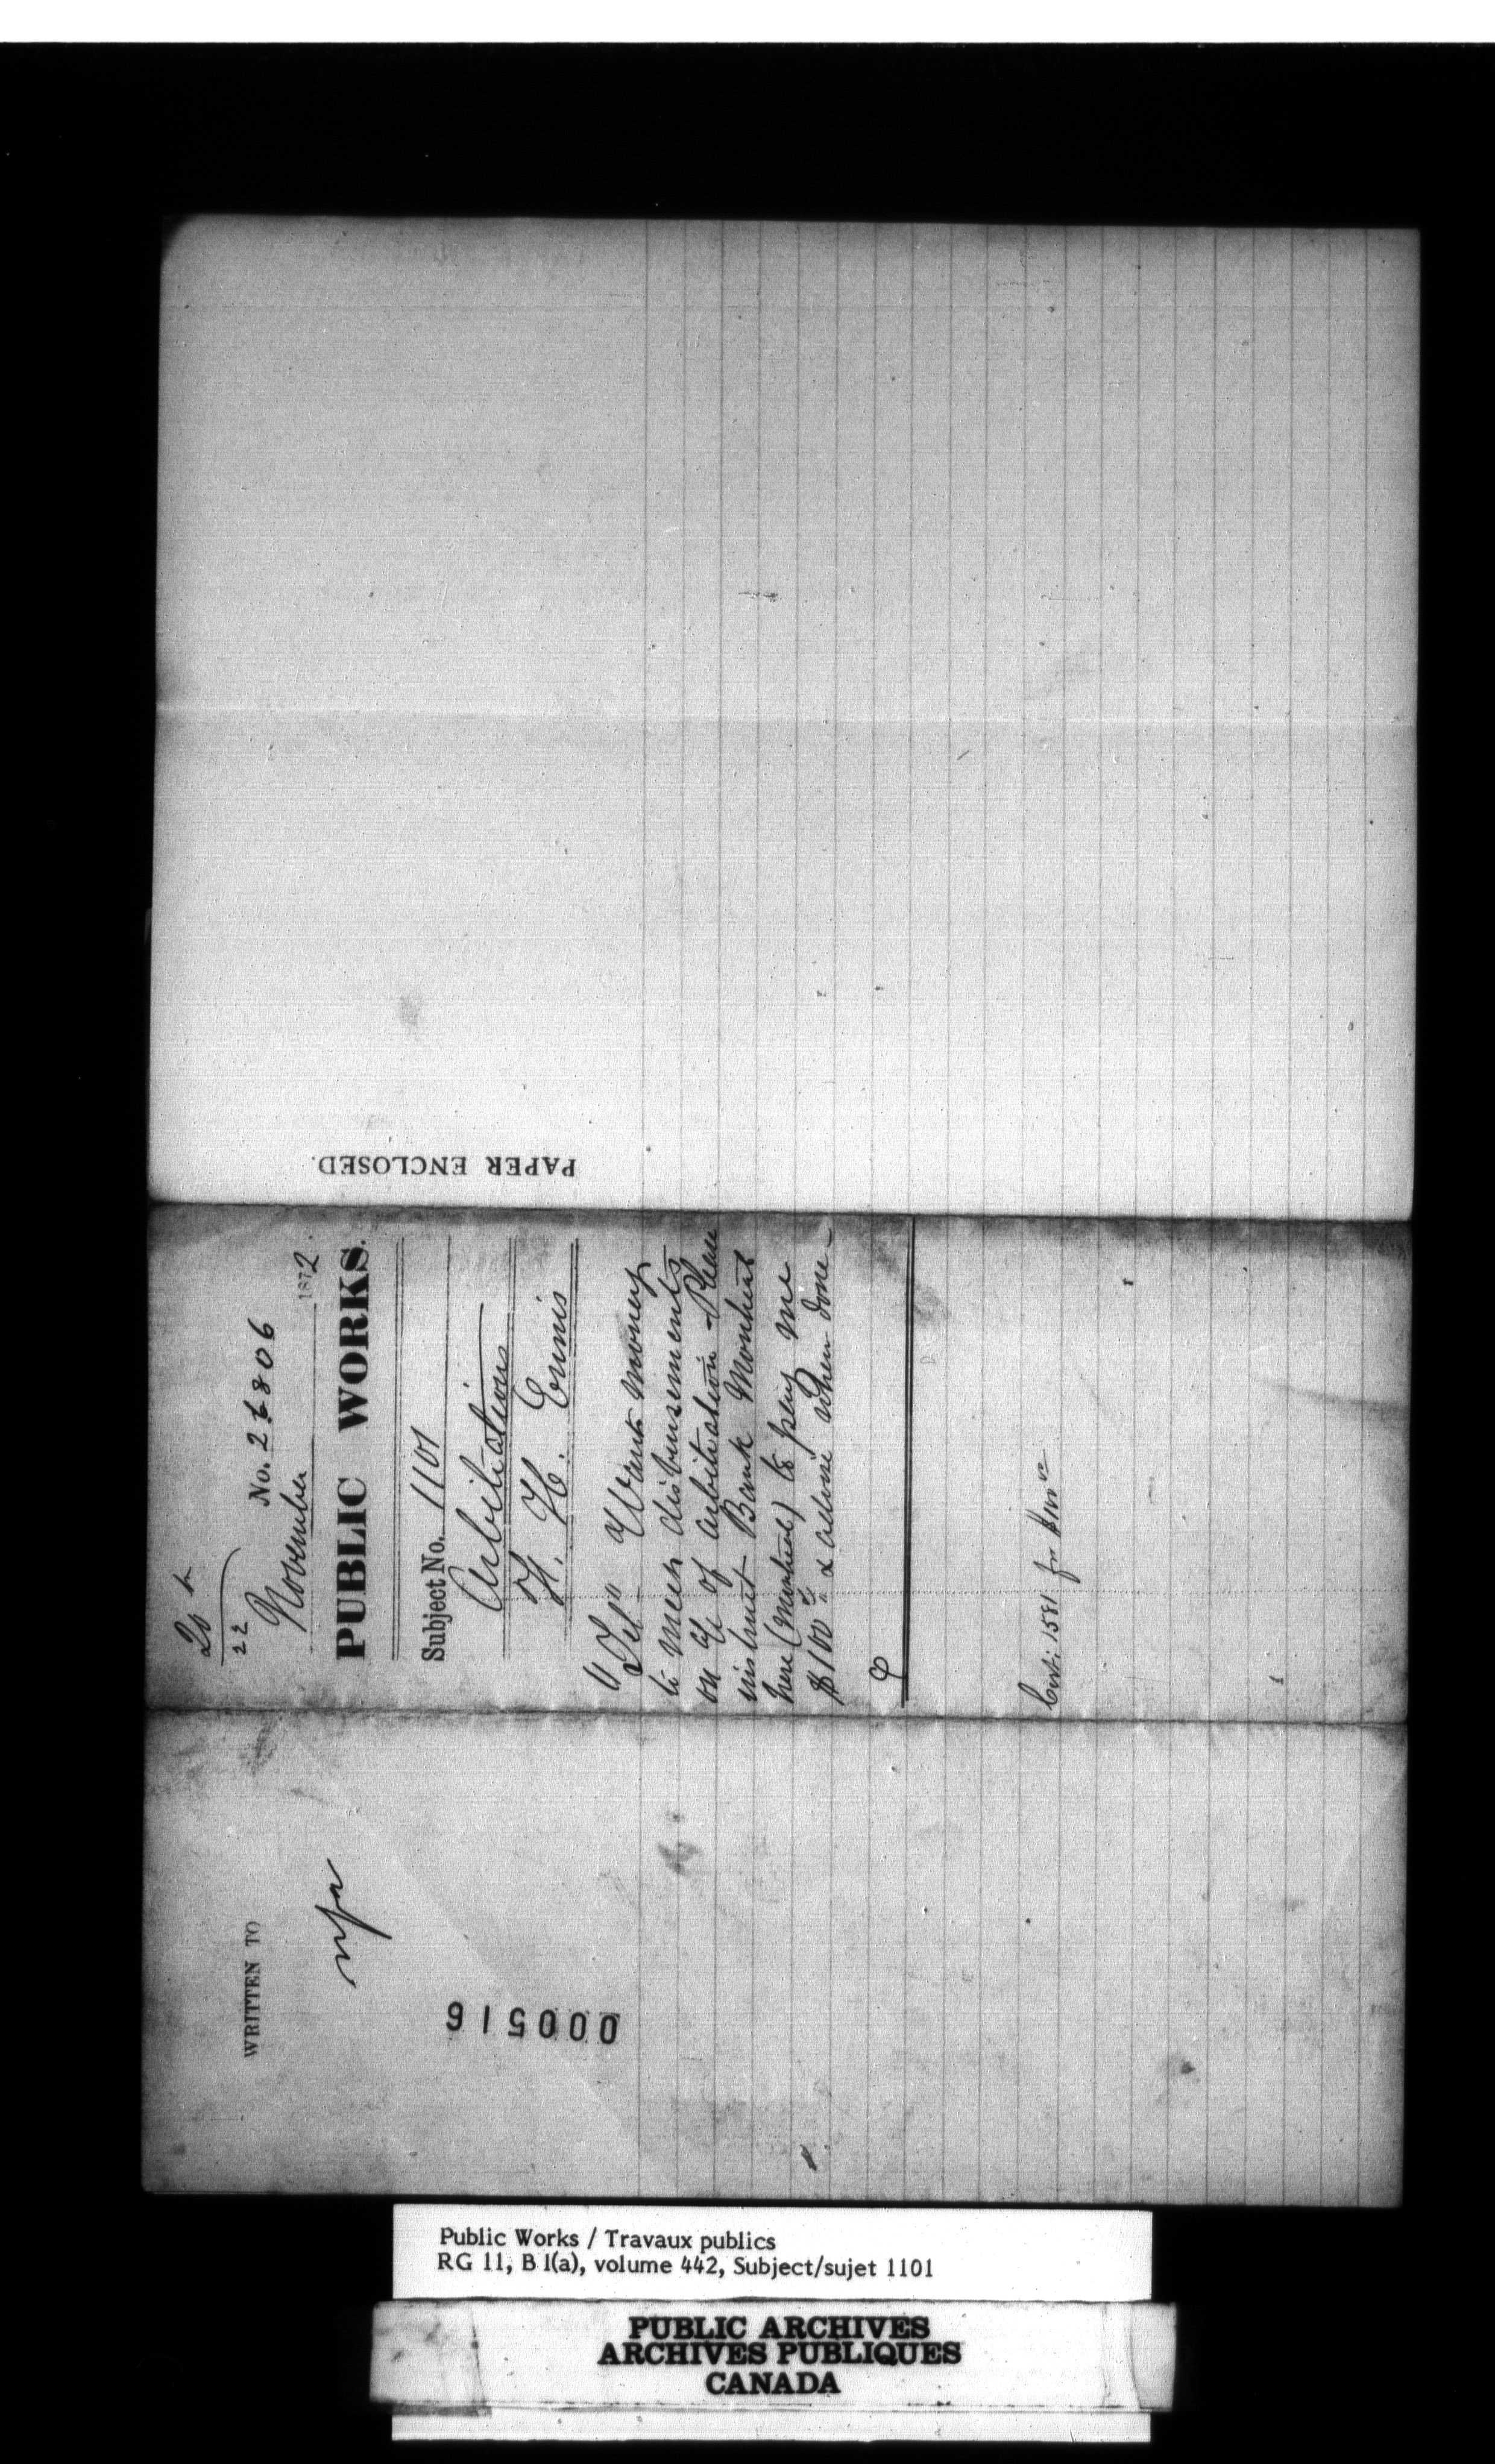 20
22
No. 26806
November 1872.
PUBLIC WORKS.
Subject No. 1101
Arbitrations
H. H. Ennis
"Tel" Want money
to meet disbursements
on a/c of arbitration - Please
instruct Bank Montreal
here (Montreal) to pay me
$100 & advise when done -
Cert: 1581 for $100
PAPER ENCLOSED.
WRITTEN TO
nfa
000516
Public Works / Travaux publics
RG 11, B 1(a), volume 442, Subject/sujet 1101
PUBLIC ARCHIVES
ARCHIVES PUBLIQUES
CANADA